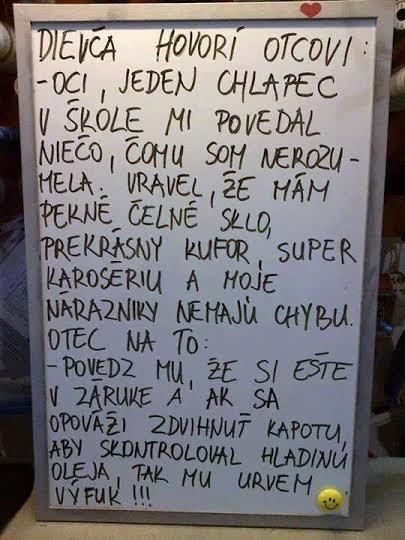 DIEVČA HOVORÍ OTCOVI:
-OCI, JEDEN CHLAPEC
V ŠKOLE MI POVEDAL
NIEČO, ČOMU SOM NEROZU-
MELA. VRAVEL, ŽE MÁM
PEKNÉ ČELNÉ SKLO,
PREKRÁSNY KUFOR, SUPER
KAROSÉRIU A MOJE
NARAZNIKY NEMAJÚ CHYBU.
OTEC NA TO:
-POVEDZ MU, ŽE SI EŠTE
V ZÁRUKE A AK SA
OPOVÁŽI ZDVIHNUŤ KAPOTU,
ABY SKONTROLOVAL HLADINU
OLEJA, TAK MU URVEM
VÝFUK!!!